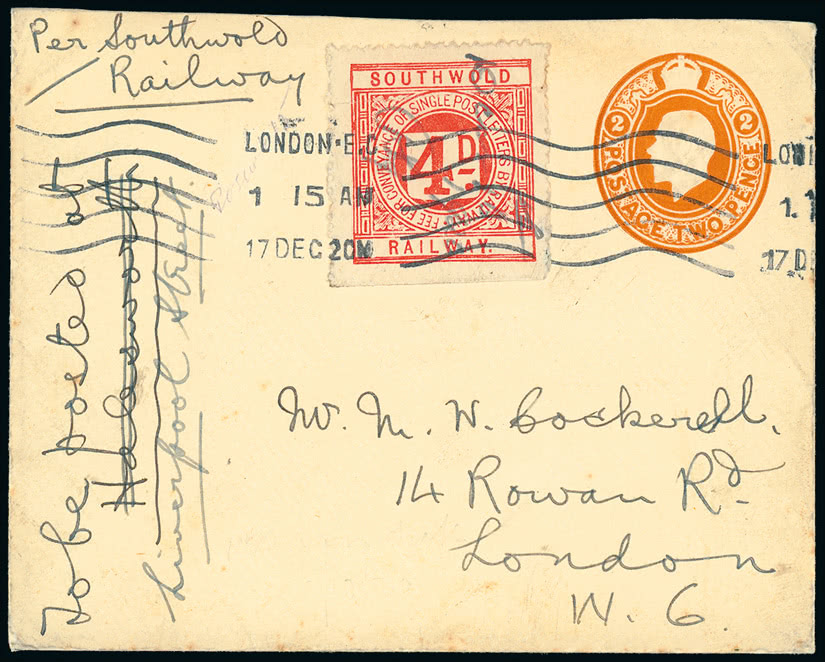 Per Southwold
Railway
SOUTHWOLD
FEE FOR CONVEYANCE OF SINGLE POST LETTERS BY RAILWAY
4D.
RAILWAY.
2 2
POSTAGE TWO PENCE
LONDON·E.C
1 15 AM
17 DEC 20
LON
1.1
17 D
To be posted at
Halesworth
Liverpool Street.
W. M. W. Cockerell.
14 Rowan Rd.
London
W. 6.